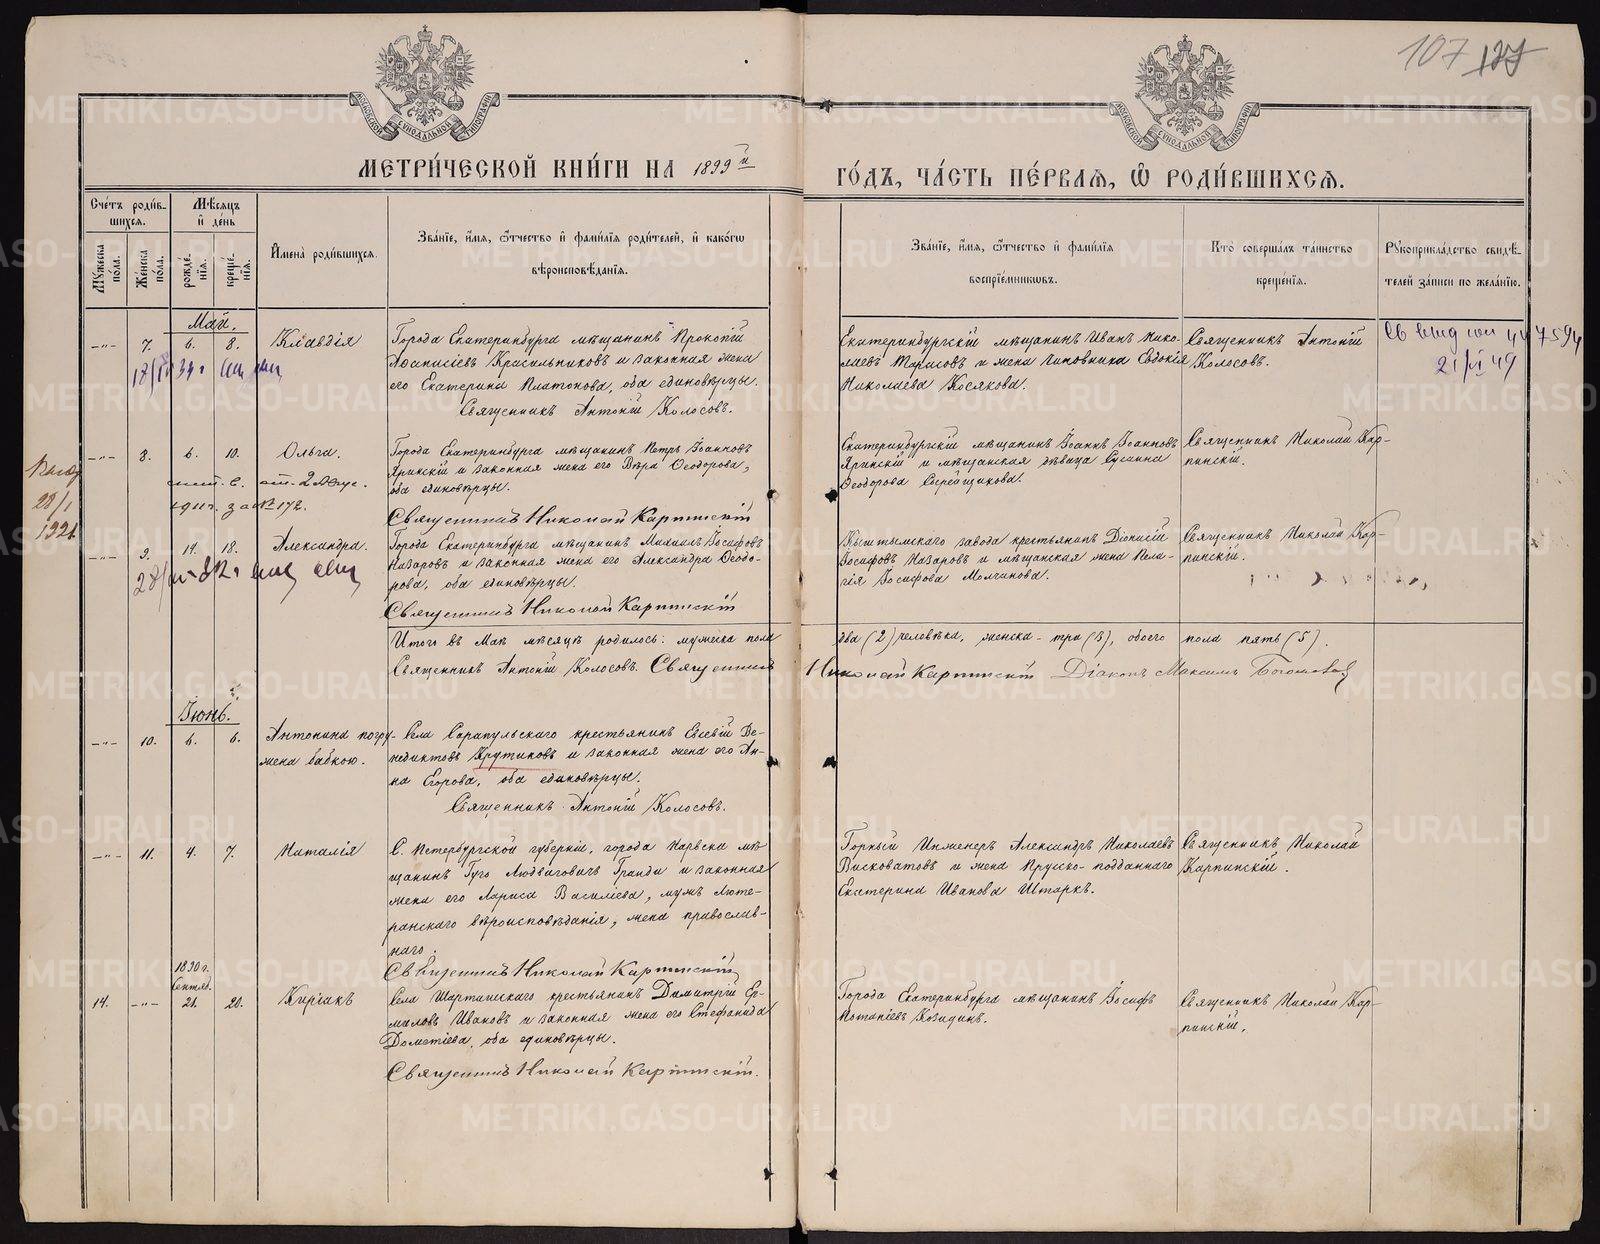 107 127
МЕТРИ́ЧЕСКОЙ КНИ́ГИ НА 1899й ГО́ДЪ, ЧА́СТЬ ПЕ́РВАЯ, Ѽ РОДИ́ВШИХСЯ.
Сче́тъ роди́в-
шихся.
Мѣ́сяцъ
и҆ де́нь
Мꙋжеска
по́ла.
Же́нска
по́ла.
рожде́-
нїя.
креще́-
нїя.
И҆мена̀ роди́вшихся.
Зва́нїе, и҆́мя, ѻ҆́тчество и҆ фами́лїя роди́телей, и҆ како́гѡ
вѣроисповѣ́данїя.
Зва́нїе, и҆́мя, ѻ҆́тчество и҆ фами́лїя
воспрїе́мникѡвъ.
Кто̀ соверша́лъ та́инство
креще́нїя.
Рꙋкоприкла́дство свидѣ́-
телей за́писи по жела́нїю.
Май.
7. 6. 8. Клавдія
Города Екатеринбурга мѣщанинъ Прокопій
Аѳанасіевъ Красильниковъ и законная жена
его Екатерина Платонова, оба единовѣрцы.
Священникъ Антоній Колосовъ.
Екатеринбургскій мѣщанинъ Иванъ Нико-
лаевъ Тарасовъ и жена чиновника Евдокія
Николаева Косякова.
Священникъ Антоній
Колосовъ.
21/VI 49
8. 6. 10. Ольга.
Города Екатеринбурга мѣщанинъ Петръ Іоанновъ
Яринскій и законная жена его Вѣра Ѳеодорова,
оба единовѣрцы.
Священникъ Николай Карпинскій
Екатеринбургскій мѣщанинъ Іоаннъ Іоанновъ
Яринскій и мѣщанская дѣвица Сусанна
Ѳеодорова Сыренщикова.
Священникъ Николай Кар-
пинскій.
от. 2 Авгус.
1911 г. за № 172.
28/I
1921
9. 14. 18. Александра.
Города Екатеринбурга мѣщанинъ Михаилъ Іосифовъ
Назаровъ и законная жена его Александра Ѳеодо-
рова, оба единовѣрцы.
Священникъ Николай Карпинскій
Кыштымскаго завода крестьянинъ Діонисій
Іосифовъ Назаровъ и мѣщанская жена Пела-
гія Іосифова Молчанова.
Священникъ Николай Кар-
пинскій.
Итого въ Маѣ мѣсяцѣ родилось: мужеска пола два (2) человѣка, женска - три (3), обоего пола пять (5).
Священникъ Антоній Колосовъ. Священникъ Николай Карпинскій Діаконъ Максимъ
Іюнь.
10. 6. 6. Антонина погру-
жена бабкою.
Села Сарапульскаго крестьянинъ Евсевій Ве-
недиктовъ Крутиковъ и законная жена его Ан-
на Егорова, оба единовѣрцы.
Священникъ Антоній Колосовъ.
11. 4. 7. Наталія
С. Петербургской губерніи, города Нарвска мѣ-
щанинъ Гуго Людвиговичъ Гранди и законная
жена его Лариса Василіева, мужъ люте-
ранскаго вѣроисповѣданія, жена православ-
наго.
Священникъ Николай Карпинскій
Горный Инженеръ Александръ Николаевъ
Висковатовъ и жена Прусско-подданнаго
Екатерина Иванова Штаркъ.
Священникъ Николай
Карпинскій.
1890 г.
Сентяб.
14. 21. 20. Киріакъ
Села Шарташскаго крестьянинъ Димитрій Ер-
миловъ Ивановъ и законная жена его Стефанида
Дометіева, оба единовѣрцы.
Священникъ Николай Карпинскій.
Города Екатеринбурга мѣщанинъ Іосифъ
Потапіевъ Козицинъ.
Священникъ Николай Кар-
пинскій.
METRIKI.GASO-URAL.RU